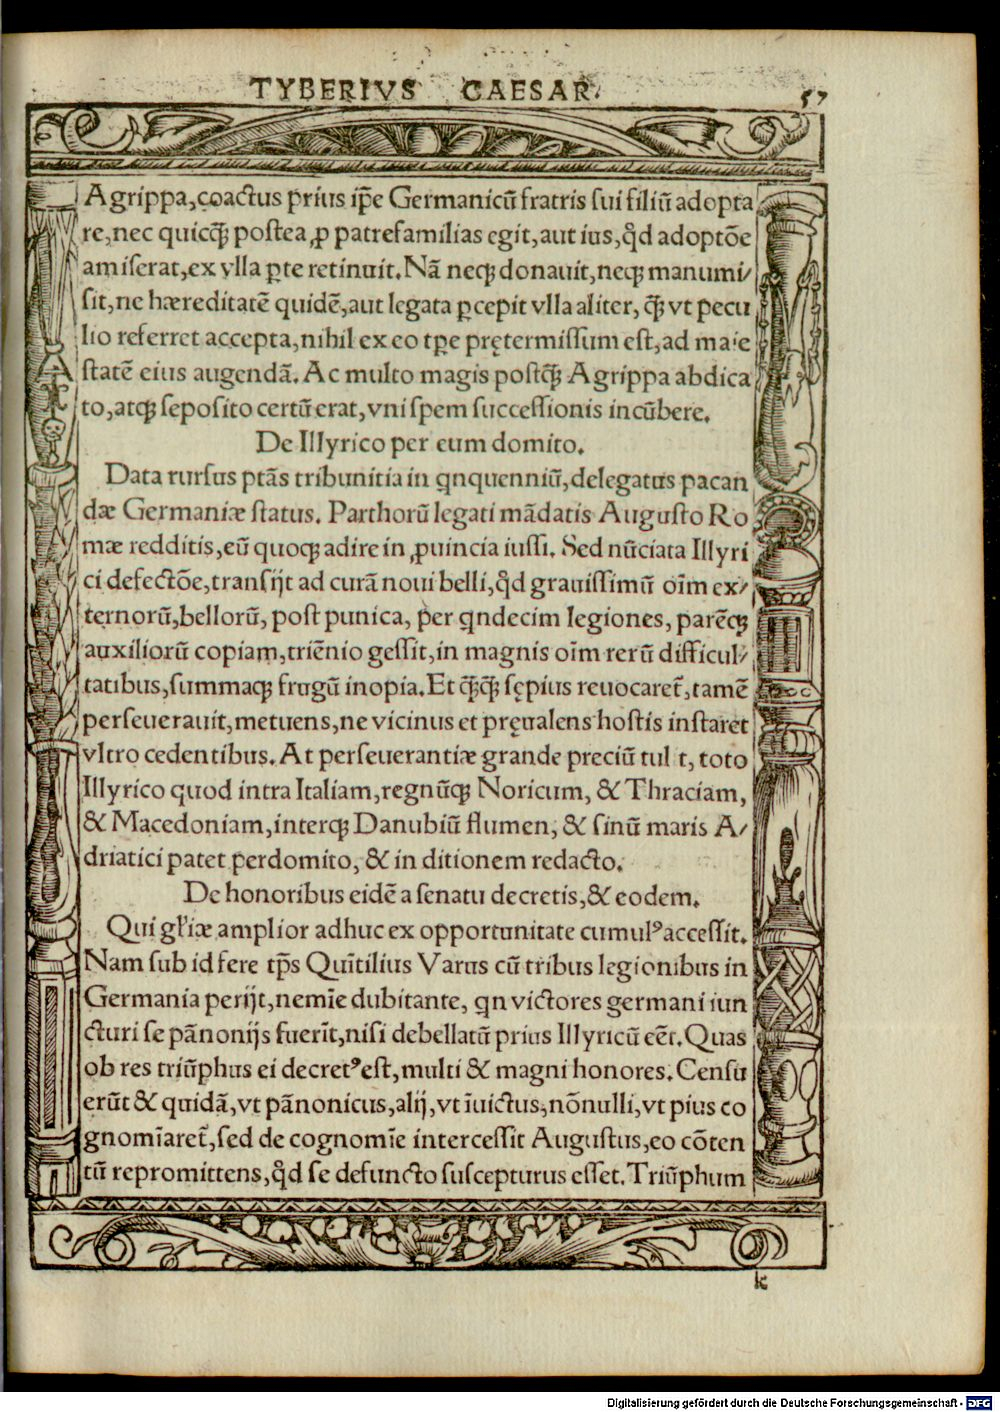 TYBERIVS CAESAR. 57
Agrippa, coactus prius ip̄e Germanicū fratris sui filiū adopta
re, nec quicq̄ȝ postea, ꝓ patrefamilias egit, aut ius, qd̄ adoptōe
amiserat, ex vlla ꝑte retinuit. Nā neqȝ donauit, neqȝ manumi/
sit, ne hæreditatē quidē, aut legata ꝑcepit vlla aliter, q̄ȝ vt pecu
lio referret accepta, nihil ex eo tꝑe prętermissum est, ad maie
statē eius augendā. Ac multo magis postq̄ȝ Agrippa abdica
to, atqȝ seposito certū erat, vni spem successionis incūbere.
De Illyrico per eum domito.
Data rursus ptās tribunitia in qnquenniū, delegatus pacan
dæ Germaniæ status. Parthorū legati mādatis Augusto Ro
mæ redditis, eū quoqȝ adire in ꝓuincia iussi. Sed nūciata Illyri
ci defectōe, transijt ad curā noui belli, qd̄ grauissimū oīm ex/
ternorū, bellorū, post punica, per qndecim legiones, parēqȝ
auxiliorū copiam, triēnio gessit, in magnis oīm rerū difficul/
tatibus, summaqȝ frugū inopia. Et q̄ȝq̄ȝ sępius reuocaret̄, tamē
perseuerauit, metuens, ne vicinus et pręualens hostis instaret
vltro cedentibus. At perseuerantiæ grande preciū tul t, toto
Illyrico quod intra Italiam, regnūqȝ Noricum, & Thraciam,
& Macedoniam, interqȝ Danubiū flumen, & sinū maris A/
driatici patet perdomito, & in ditionem redacto.
De honoribus eidē a senatu decretis, & eodem.
Qui gl'iæ amplior adhuc ex opportunitate cumulꝰ accessit.
Nam sub id fere tp̄s Quītilius Varus cū tribus legionibus in
Germania perijt, nemīe dubitante, qn victores germani iun
cturi se pānonijs fuerīt, nisi debellatū prius Illyricū eēt. Quas
ob res triūphus ei decretꝰ est, multi & magni honores. Censu
erūt & quidā, vt pānonicus, alij, vt īuictus, nōnulli, vt pius co
gnomīaret̄, sed de cognomīe intercessit Augustus, eo cōten
tū repromittens, qd̄ se defuncto suscepturus esset. Triūphum
k
Digitalisierung gefördert durch die Deutsche Forschungsgemeinschaft - DFG